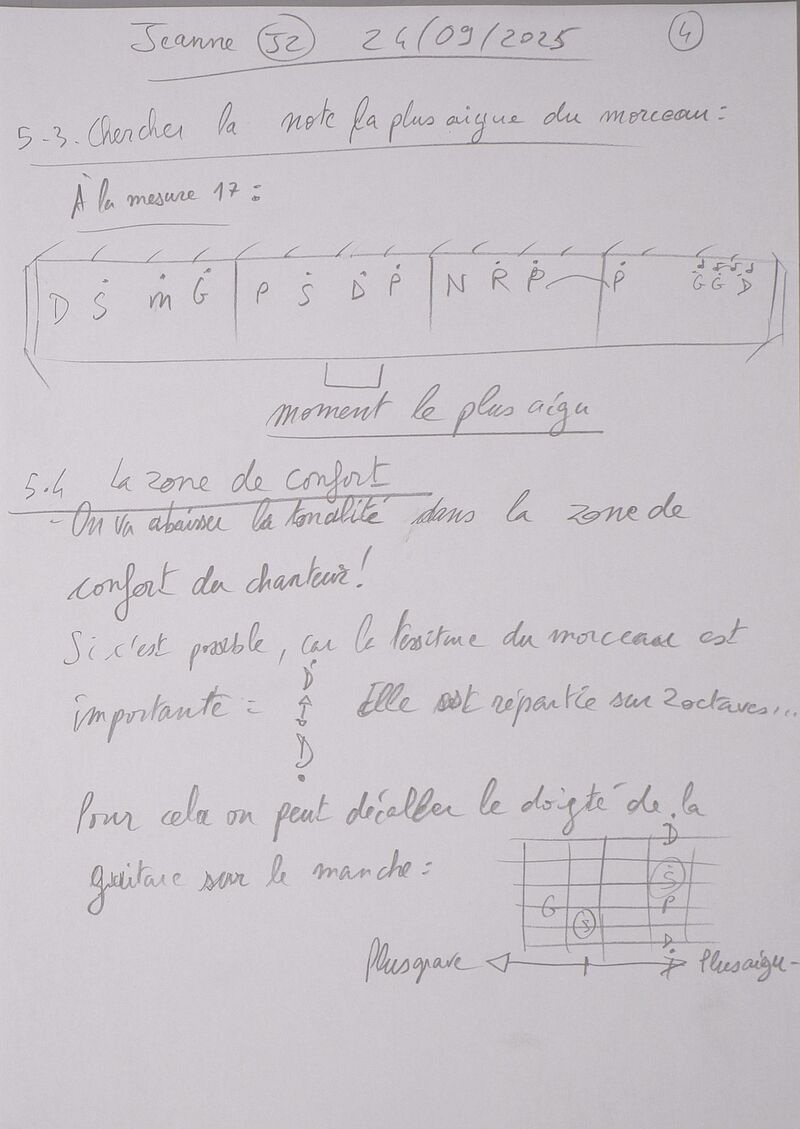 Jeanne J2 24/09/2025 4
5-3. Chercher la note la plus aigue du morceau:
À la mesure 17:
D S m G P S D P N R P P G G D
moment le plus aigu
5.4 La zone de confort
- On va abaisser la tonalité dans la zone de
confort du chanteur!
Si c'est possible, car la tessiture du morceau est
importante = D
D Elle est répartie sur 2 octaves...
Pour cela on peut décaller le doigté de la
guitare sur le manche:
D
S
G P
S
D
Plus grave Plus aigu